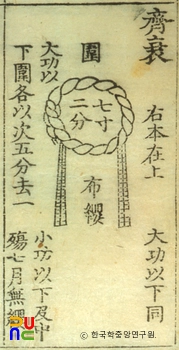 齊衰
右本在上
大功以下同
圍
七寸
二分
布纓
大功以
下圍各以次五分去一
小功以下及中
殤七月無纓
ⓒ 한국학중앙연구원